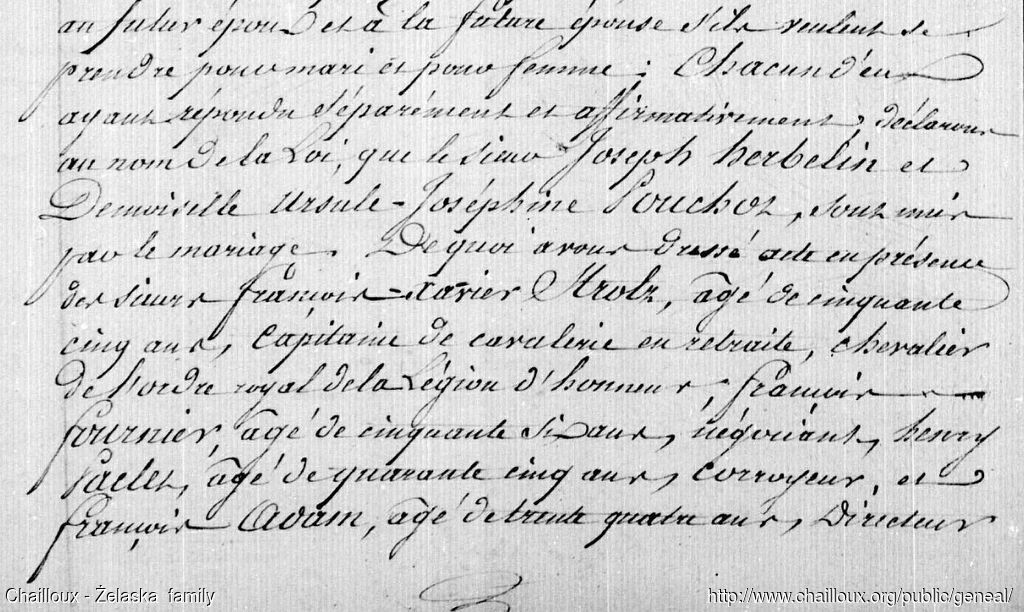 au futur époux et à la future épouse s'ils veulent se
prendre pour mari et pour femme ; Chacun d'eux
ayant répondu séparément et affirmativement, déclarons
au nom de la Loi, que le sieur Joseph herbelin et
Demoiselle Ursule-Joséphine Pouchot, sont unis
par le mariage. De quoi avons dressé acte en présence
des sieurs françois-xavier Strolz, agé de cinquante
cinq ans, Capitaine de cavalerie en retraite, chevalier
de l'ordre royal de la Légion d'honneur, françois
fournier, agé de cinquante six ans, négociant, henry
agé de quarante cinq ans, corroyeur, et
françois Adam, agé de trente quatre ans, Directeur
Chailloux - Żelaska family
http://www.chailloux.org/public/geneal/